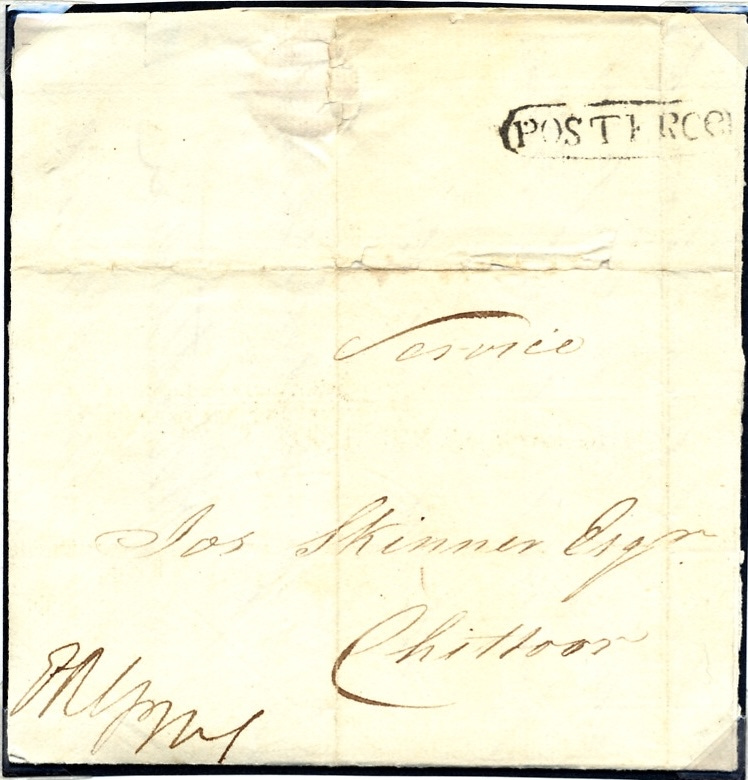 POST ERCO
Service
Jos Skinner Esqr
Chittoor